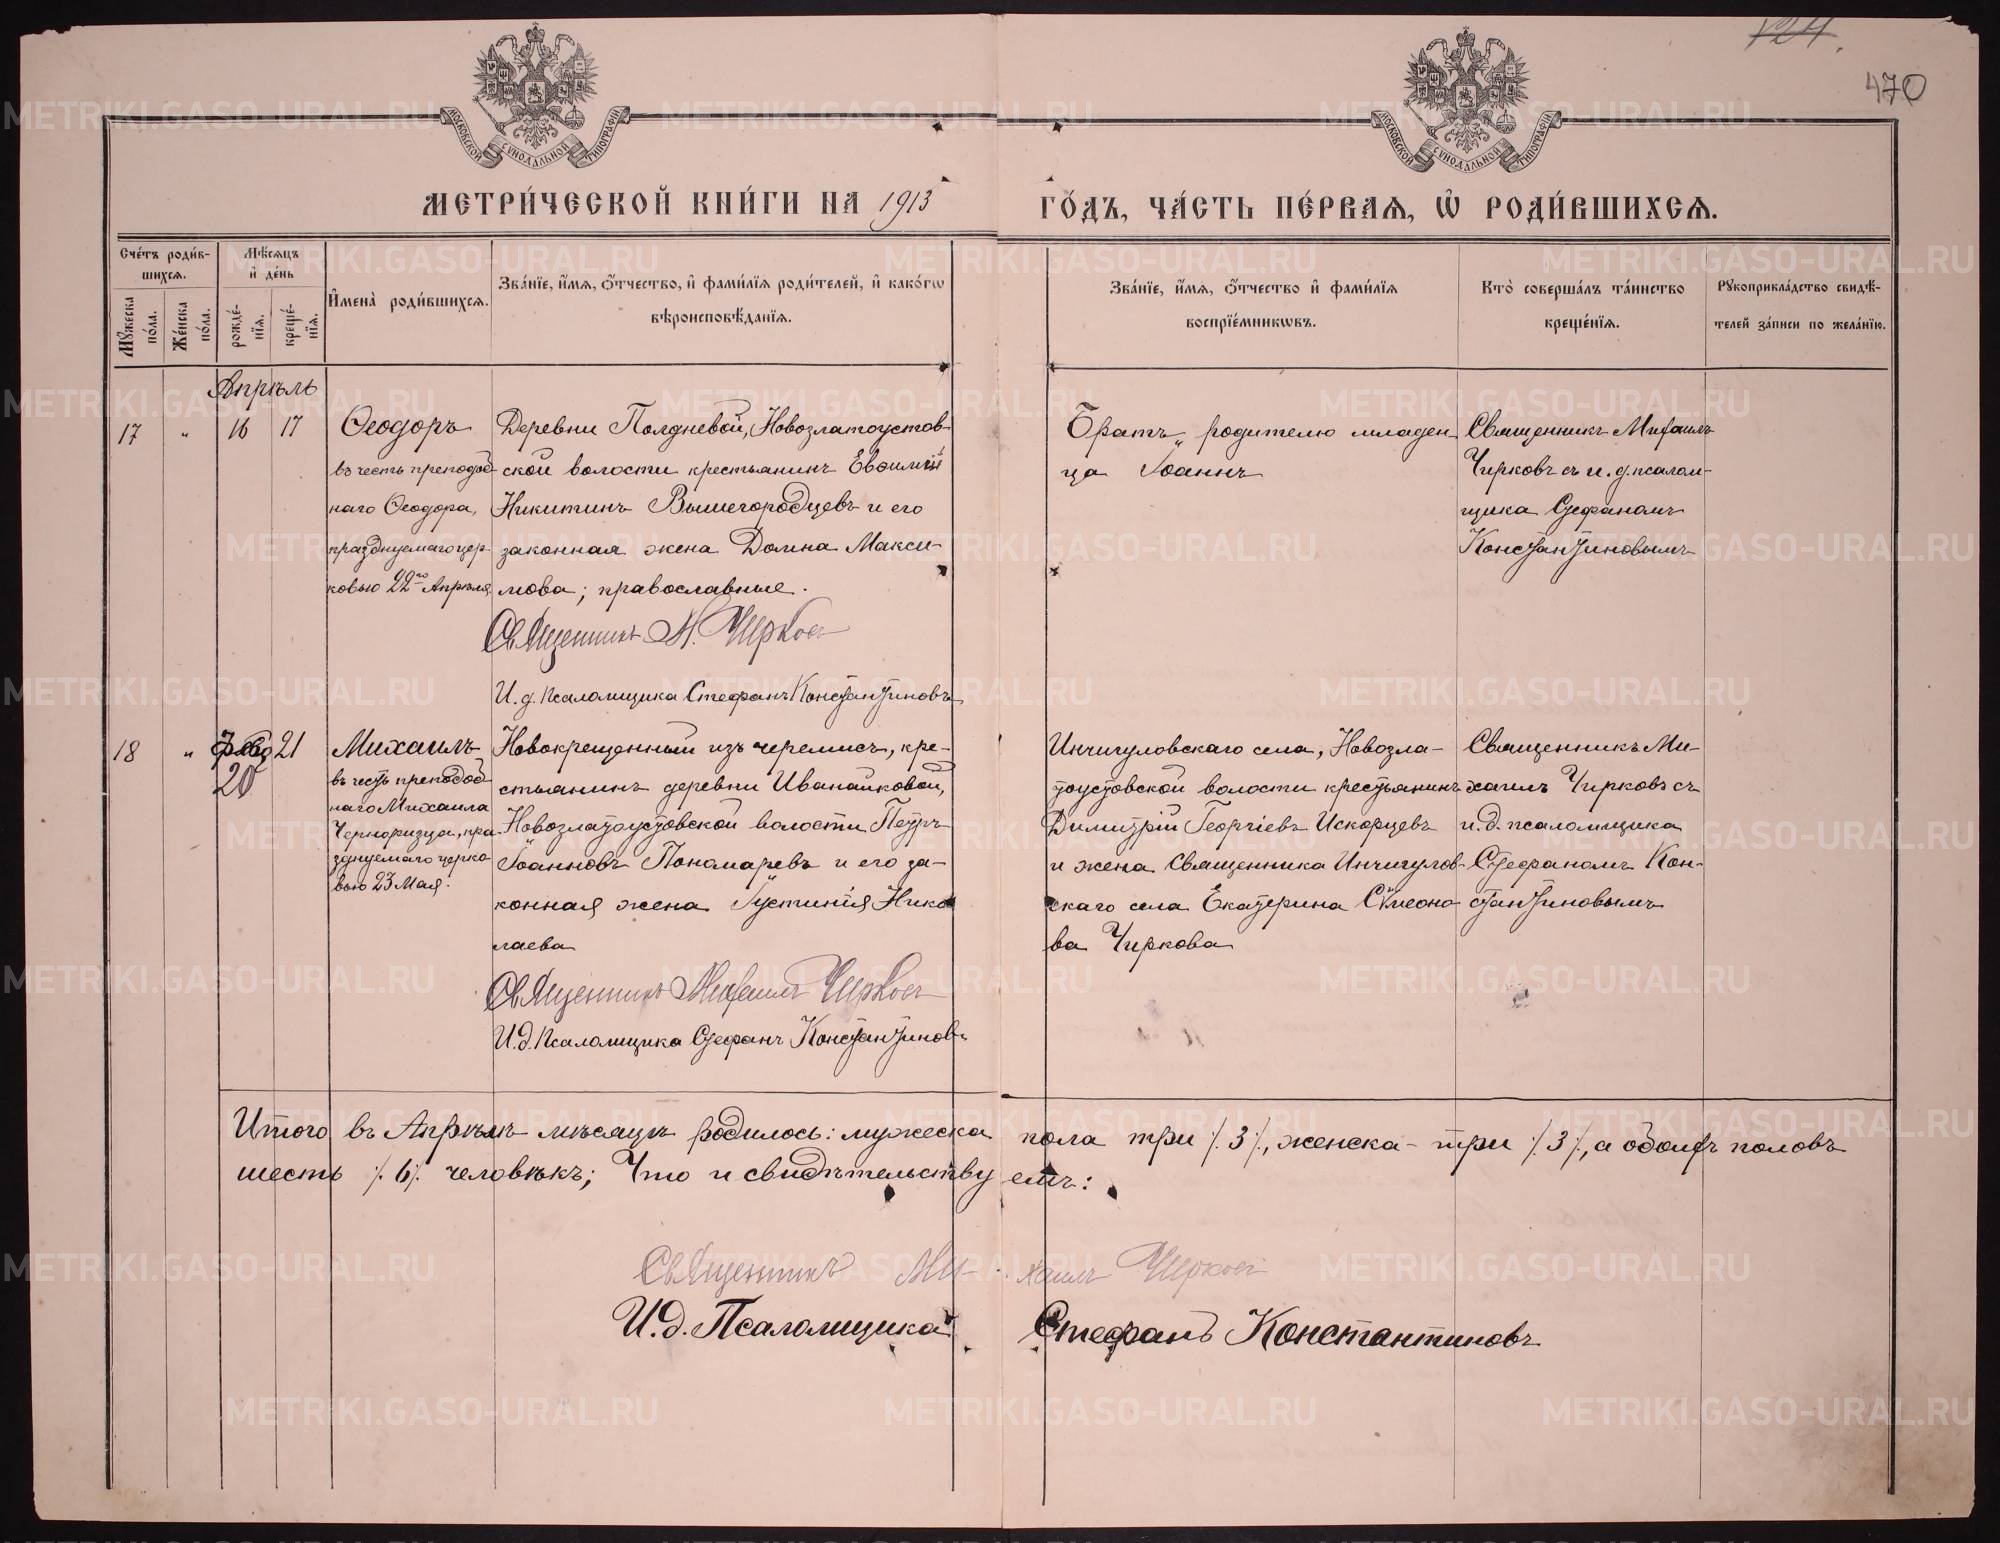 124.
470
МОСКОВСКОЙ СѴНОДАЛЬНОЙ ТИПОГРАФІИ
МОСКОВСКОЙ СѴНОДАЛЬНОЙ ТИПОГРАФІИ
МЕТРИ́ЧЕСКОЙ КНИ́ГИ НА 1913 ГО́ДЪ, ЧА́СТЬ ПЕ́РВАѦ, Ѡ҆ РОДИ́ВШИХСѦ.
Сче́тъ роди́в-
шихсѧ.
Мꙋжеска
по́ла.
Же́нска
по́ла.
Мѣ́сѧцъ
и҆ де́нь
рожде́-
нїѧ.
креще́-
нїѧ.
И҆мена̀ роди́вшихсѧ.
Зва́нїе, и҆́мѧ, ѻ҆́тчество, и҆ фами́лїѧ роди́телей, и҆ како́гѡ
вѣроисповѣ́данїѧ.
Зва́нїе, и҆́мѧ, ѻ҆́тчество и҆ фами́лїѧ
воспрїе́мникѡвъ.
Кто̀ соверша́лъ та́инство
креще́нїѧ.
Рꙋкоприкла́дство свидѣ́-
телей за́писи по жела́нїю.
Апрѣль
17 „ 16 17
Ѳеодоръ
въ честь преподоб
наго Ѳеодора,
празднуемаго цер-
ковью 22го Апрѣля
Деревни Полдневой, Новозлатоустов-
ской волости крестьянинъ Евѳимій
Никитинъ Вышегородцевъ и его
законная жена Домна Макси-
мова; православные.
Священникъ М. Чирков
И. д. псаломщика Стефанъ Константиновъ
Братъ родителю младен
ца Іоаннъ
Священникъ Михаилъ
Чирковъ съ и. д. псалом-
щика Стефаномъ
Константиновымъ
18 „ 20 21
Михаилъ
въ честь преподоб
наго Михаила
Черноризца, пра
зднуемаго церко
вью 23 Мая.
Новокрещенный изъ черемисъ, кре-
стьянинъ деревни Иванайковой,
Новозлатоустовской волости Петръ
Іоанновъ Пономаревъ и его за-
конная жена Іустинія Нико
лаева
Священникъ Михаилъ Чирков
И. д. псаломщика Стефанъ Константиновъ
Инчигуловскаго села, Новозла-
тоустовской волости крестьянинъ
Димитрій Георгіевъ Искорцевъ
и жена Священника Инчигулов-
скаго села Екатерина Симеоно
ва Чиркова
Священникъ Ми-
хаилъ Чирковъ съ
и. д. псаломщика
Стефаномъ Кон-
стантиновымъ
Итого въ Апрѣлѣ мѣсяцѣ родилось: мужеска пола три /.3/., женска - три /.3/., а обоихъ половъ
шесть /.6/. человѣкъ; Что и свидѣтельствуемъ:
Священникъ Михаилъ Чирков
И. д. Псаломщика Стефанъ Константиновъ
METRIKI.GASO-URAL.RU